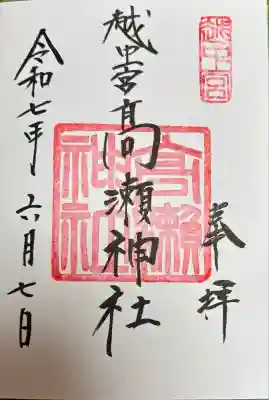 奉拝
越中宮
越中宮高瀬神社
高瀬神社
令和七年六月七日